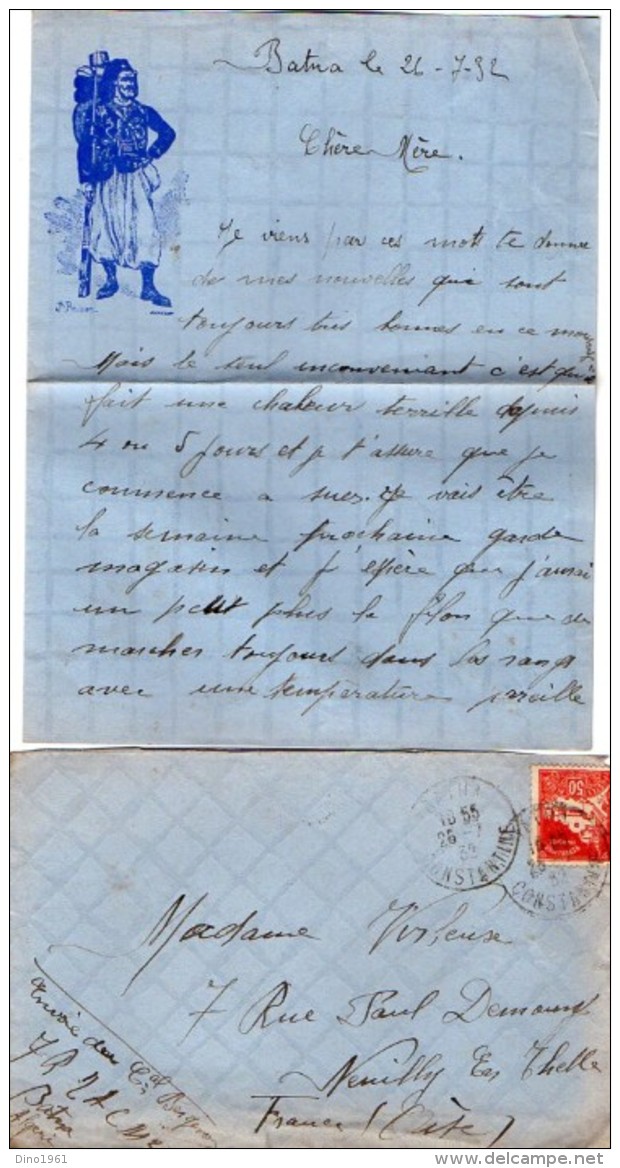 Batna le 26-7-32
Chère Mère.
Je viens par ces mots te donner
de mes nouvelles qui sont
toujours très bonnes en ce moment
Mais le seul inconveniant c'est qu'il
fait une chaleur terrible depuis
4 ou 5 jours et je t'assure que je
commence a suer. Je vais être
la semaine prochaine garde
magasin et j'espère que j'aurai
un petit plus le filon que de
marcher toujours dans les rangs
avec une température pareille
18 55
26-7
32
CONSTANTINE
50
CONSTANTINE
Madame
7 Rue Paul
Neuilly En Thelle
France (Oise)
Batna
Algerie
Dino1961